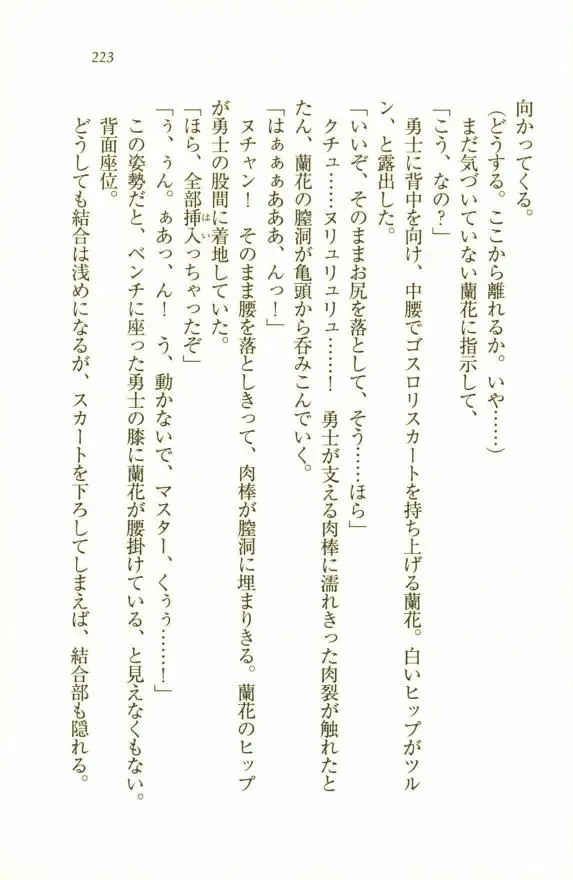 223
向かってくる。
(どうする。ここから離れるか。いや……)
まだ気づいていない蘭花に指示して、
「こう、なの?」
勇士に背中を向け、中腰でゴスロリスカートを持ち上げる蘭花。白いヒップがツル
ン、と露出した。
「いいぞ、そのままお尻を落として、そう……ほら」
クチュ……ヌリュリュリュ……! 勇士が支える肉棒に濡れきった肉裂が触れたと
たん、蘭花の膣洞が亀頭から呑みこんでいく。
「はぁぁぁあああ、んっ!」
ヌチャン! そのまま腰を落としきって、肉棒が膣洞に埋まりきる。蘭花のヒップ
が勇士の股間に着地していた。
「ほら、全部挿入っちゃったぞ」
はい
「ぅ、ぅん。ぁあっ、ん! う、動かないで、マスター、くぅぅ……!」
この姿勢だと、ベンチに座った勇士の膝に蘭花が腰掛けている、と見えなくもない。
背面座位。
どうしても結合は浅めになるが、スカートを下ろしてしまえば、結合部も隠れる。